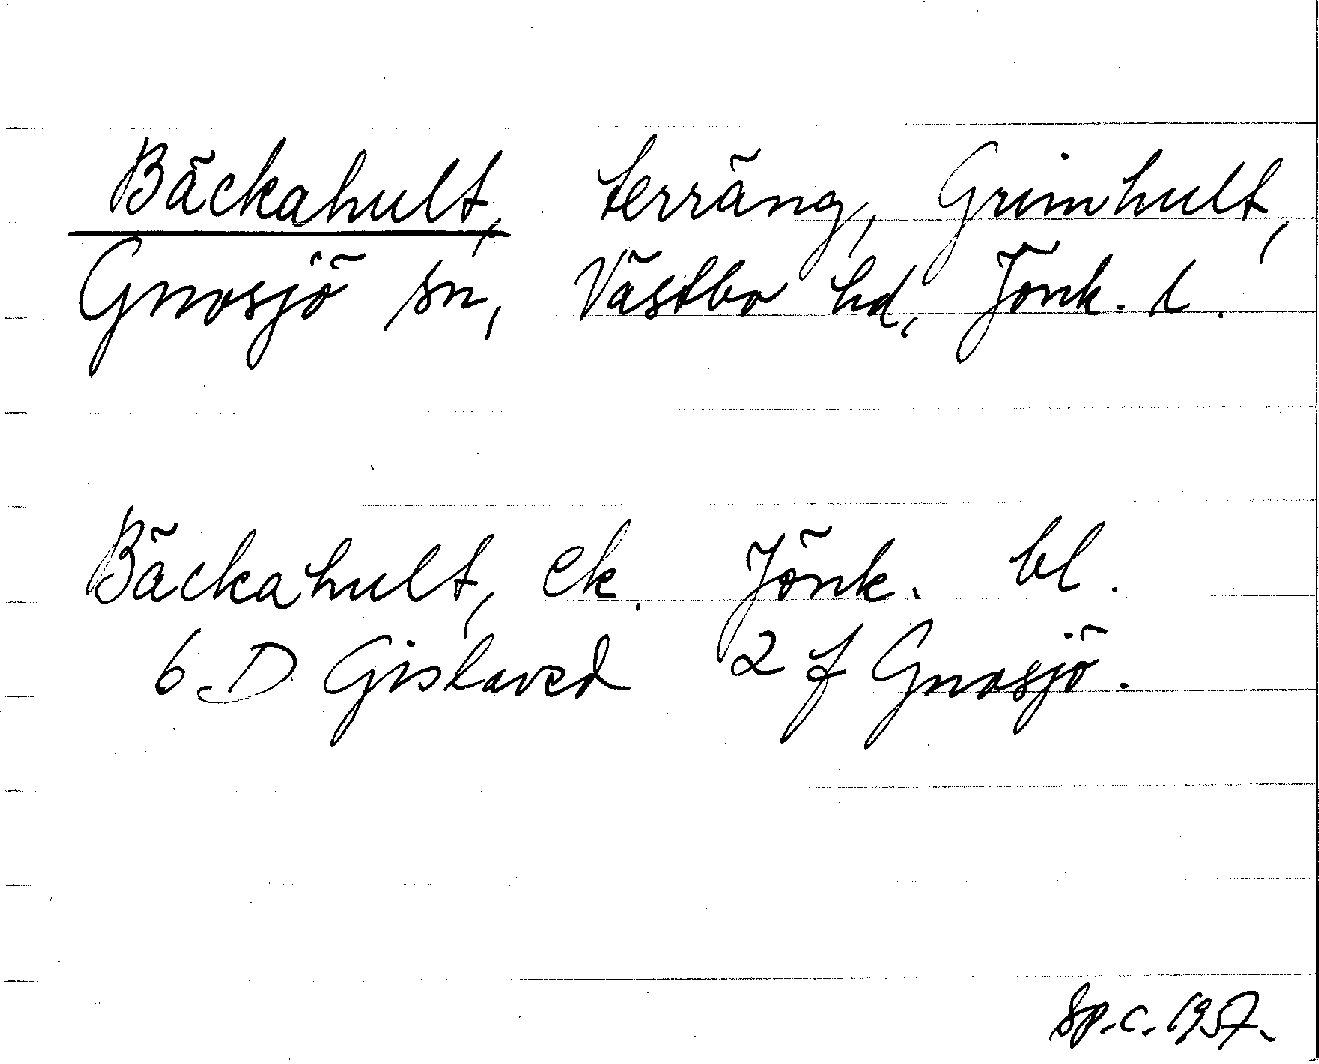 Bäckahult, terräng, Grimhult,
Gnosjö sn, Västbo hd, Jönk. l.
Bäckahult, ek. Jönk. bl.
6 D Gislaved 2 f Gnosjö.
Sp.c. 1957.